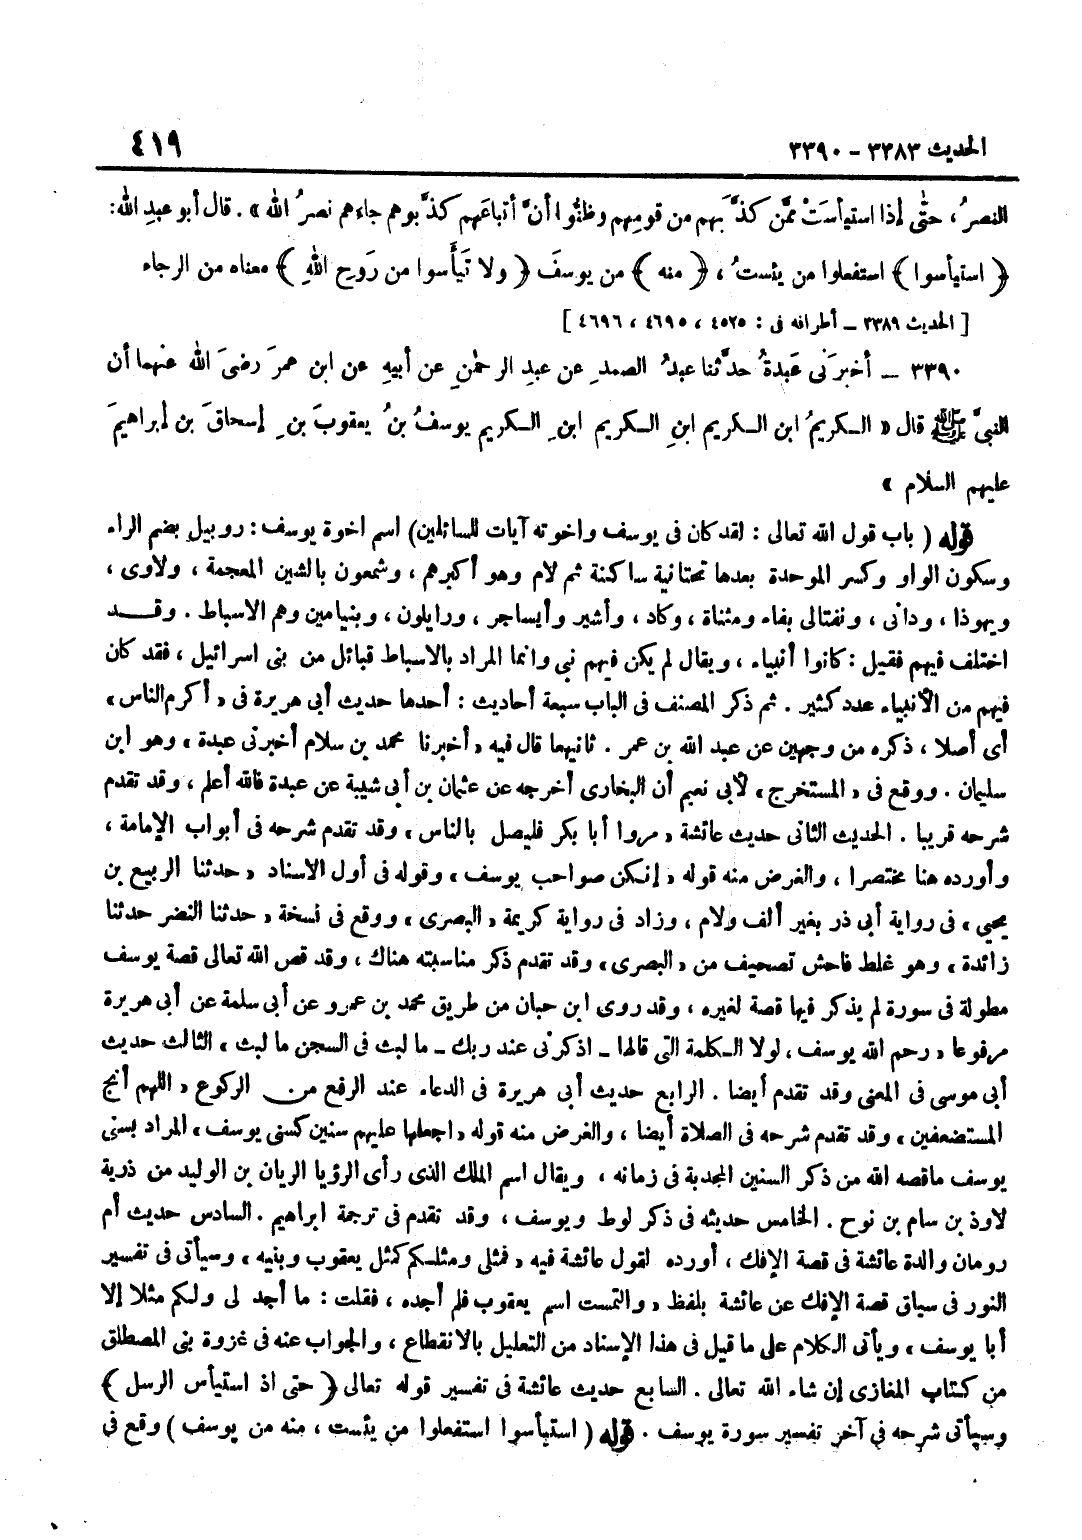 الحديث ٣٣٨٣ - ٣٣٩٠
٤١٩
النصرُ، حتّٰى إذا استيأسَتْ ممَّن كذَّبَهم من قومِهم وظنُّوا أنَّ أتباعَهم كذَّبوهم جاءهم نصرُ الله » . قال أبو عبدِ الله:
﴿ استيأسوا ﴾ استفعلوا من يئستُ ، ﴿ منه ﴾ من يوسفَ ﴿ ولا تَيأَسوا من رَوحِ اللهِ ﴾ معناه من الرجاء
[ الحديث ٣٣٨٩ ــ أطرافه فى : ٤٥٢٥ ، ٤٦٩٥ ، ٤٦٩٦ ]
٣٣٩٠ ــ أخبرَنى عَبدةُ حدَّثنا عبدُ الصمدِ عن عبدِ الرحمٰنِ عن أبيهِ عن ابن عمرَ رضىَ الله عنهما أن
النبىَّ ﷺ قال « الـكريمُ ابن الـكريم ابنِ الـكريم ابنِ الـكريم يوسفُ بنُ يعقوبَ بنِ إسحاقَ بن إبراهيمَ
عليهم السلام »
قوله ( باب قول الله تعالى : لقد كان فى يوسف واخوته آيات للسائلين) اسم اخوة يوسف : روبيل بضم الراء
وسكون الواو وكسر الموحدة بعدها تحتانية ساكنة ثم لام وهو أكبرهم ، وشمعون بالشين المعجمة ، ولاوى ،
ويهوذا ، ودانى ، ونفتالى بفاء ومثناة ، وكاد ، وأشير وأيساجر ، ورايلون ، وبنيامين وهم الاسباط . وقــد
اختلف فيهم فقيل : كانوا أنبياء ، ويقال لم يكن فيهم نبى وانما المراد بالاسباط قبائل من بنى اسرائيل ، فقد كان
فيهم من الأنبياء عدد كثير . ثم ذكر المصنف فى الباب سبعة أحاديث : أحدها حديث أبى هريرة فى « أكرم الناس »
أى أصلا ، ذكره من وجهين عن عبد الله بن عمر . ثانيهما قال فيه « أخبرنا محمد بن سلام أخبرنى عبدة » وهو ابن
سليمان . ووقع فى « المستخرج » لأبى نعيم أن البخارى أخرجه عن عثمان بن أبى شيبة عن عبدة فالله أعلم ، وقد تقدم
شرحه قريبا . الحديث الثانى حديث عائشة « مروا أبا بكر فليصل بالناس » وقد تقدم شرحه فى أبواب الإمامة ،
وأورده هنا مختصرا ، والغرض منه قوله « إنكن صواحب يوسف » وقوله فى أول الاسناد « حدثنا الربيع بن
يحيي » فى رواية أبى ذر بغير ألف ولام ، وزاد فى رواية كريمة « البصرى » ووقع فى نسخة « حدثنا النضر حدثنا
زائدة » وهو غلط فاحش تصحيف من « البصرى » وقد تقدم ذكر مناسبته هناك ، وقد قص الله تعالى قصة يوسف
مطولة فى سورة لم يذكر فيها قصة لغيره ، وقد روى ابن حبان من طريق محمد بن عمرو عن أبى سلمة عن أبى هريرة
مرفوعا « رحم الله يوسف ، لولا الـكلمة التى قالها ــ اذكرنى عند ربك ــ ما لبث فى السجن ما لبث » الثالث حديث
أبى موسى فى المعنى وقد تقدم أيضا . الرابع حديث أبى هريرة فى الدعاء عند الرفع من الركوع « اللهم أنج
المستضعفين » وقد تقدم شرحه فى الصلاة أيضا ، والغرض منه قوله « اجعلها عليهم سنين كسنى يوسف » المراد بسنى
يوسف ماقصه الله من ذكر السنين المجدبة فى زمانه ، ويقال اسم الملك الذى رأى الرؤيا الريان بن الوليد من ذرية
لاوذ بن سام بن نوح . الخامس حديثه فى ذكر لوط ويوسف ، وقد تقدم فى ترجمة ابراهيم . السادس حديث أم
رومان والدة عائشة فى قصة الإفك ، أورده لقول عائشة فيه « فمثلى ومثلـكم كمثل يعقوب وبنيه » وسيأتى فى تفسير
النور فى سياق قصة الإفك عن عائشة بلفظ « والتمست اسم يعقوب فلم أجده ، فقلت : ما أجد لى ولـكم مثلا إلا
أبا يوسف » ويأتى الـكلام على ما قيل فى هذا الإسناد من التعليل بالانقطاع ، والجواب عنه فى غزوة بنى المصطلق
من كتاب المغازى إن شاء الله تعالى . السابع حديث عائشة فى تفسير قوله تعالى ﴿ حتى اذ استيأس الرسل ﴾
وسيأتى شرحه فى آخر تفسير سورة يوسف . قوله ( استيأسوا استفعلوا من يئست ، منه من يوسف ) وقع فى